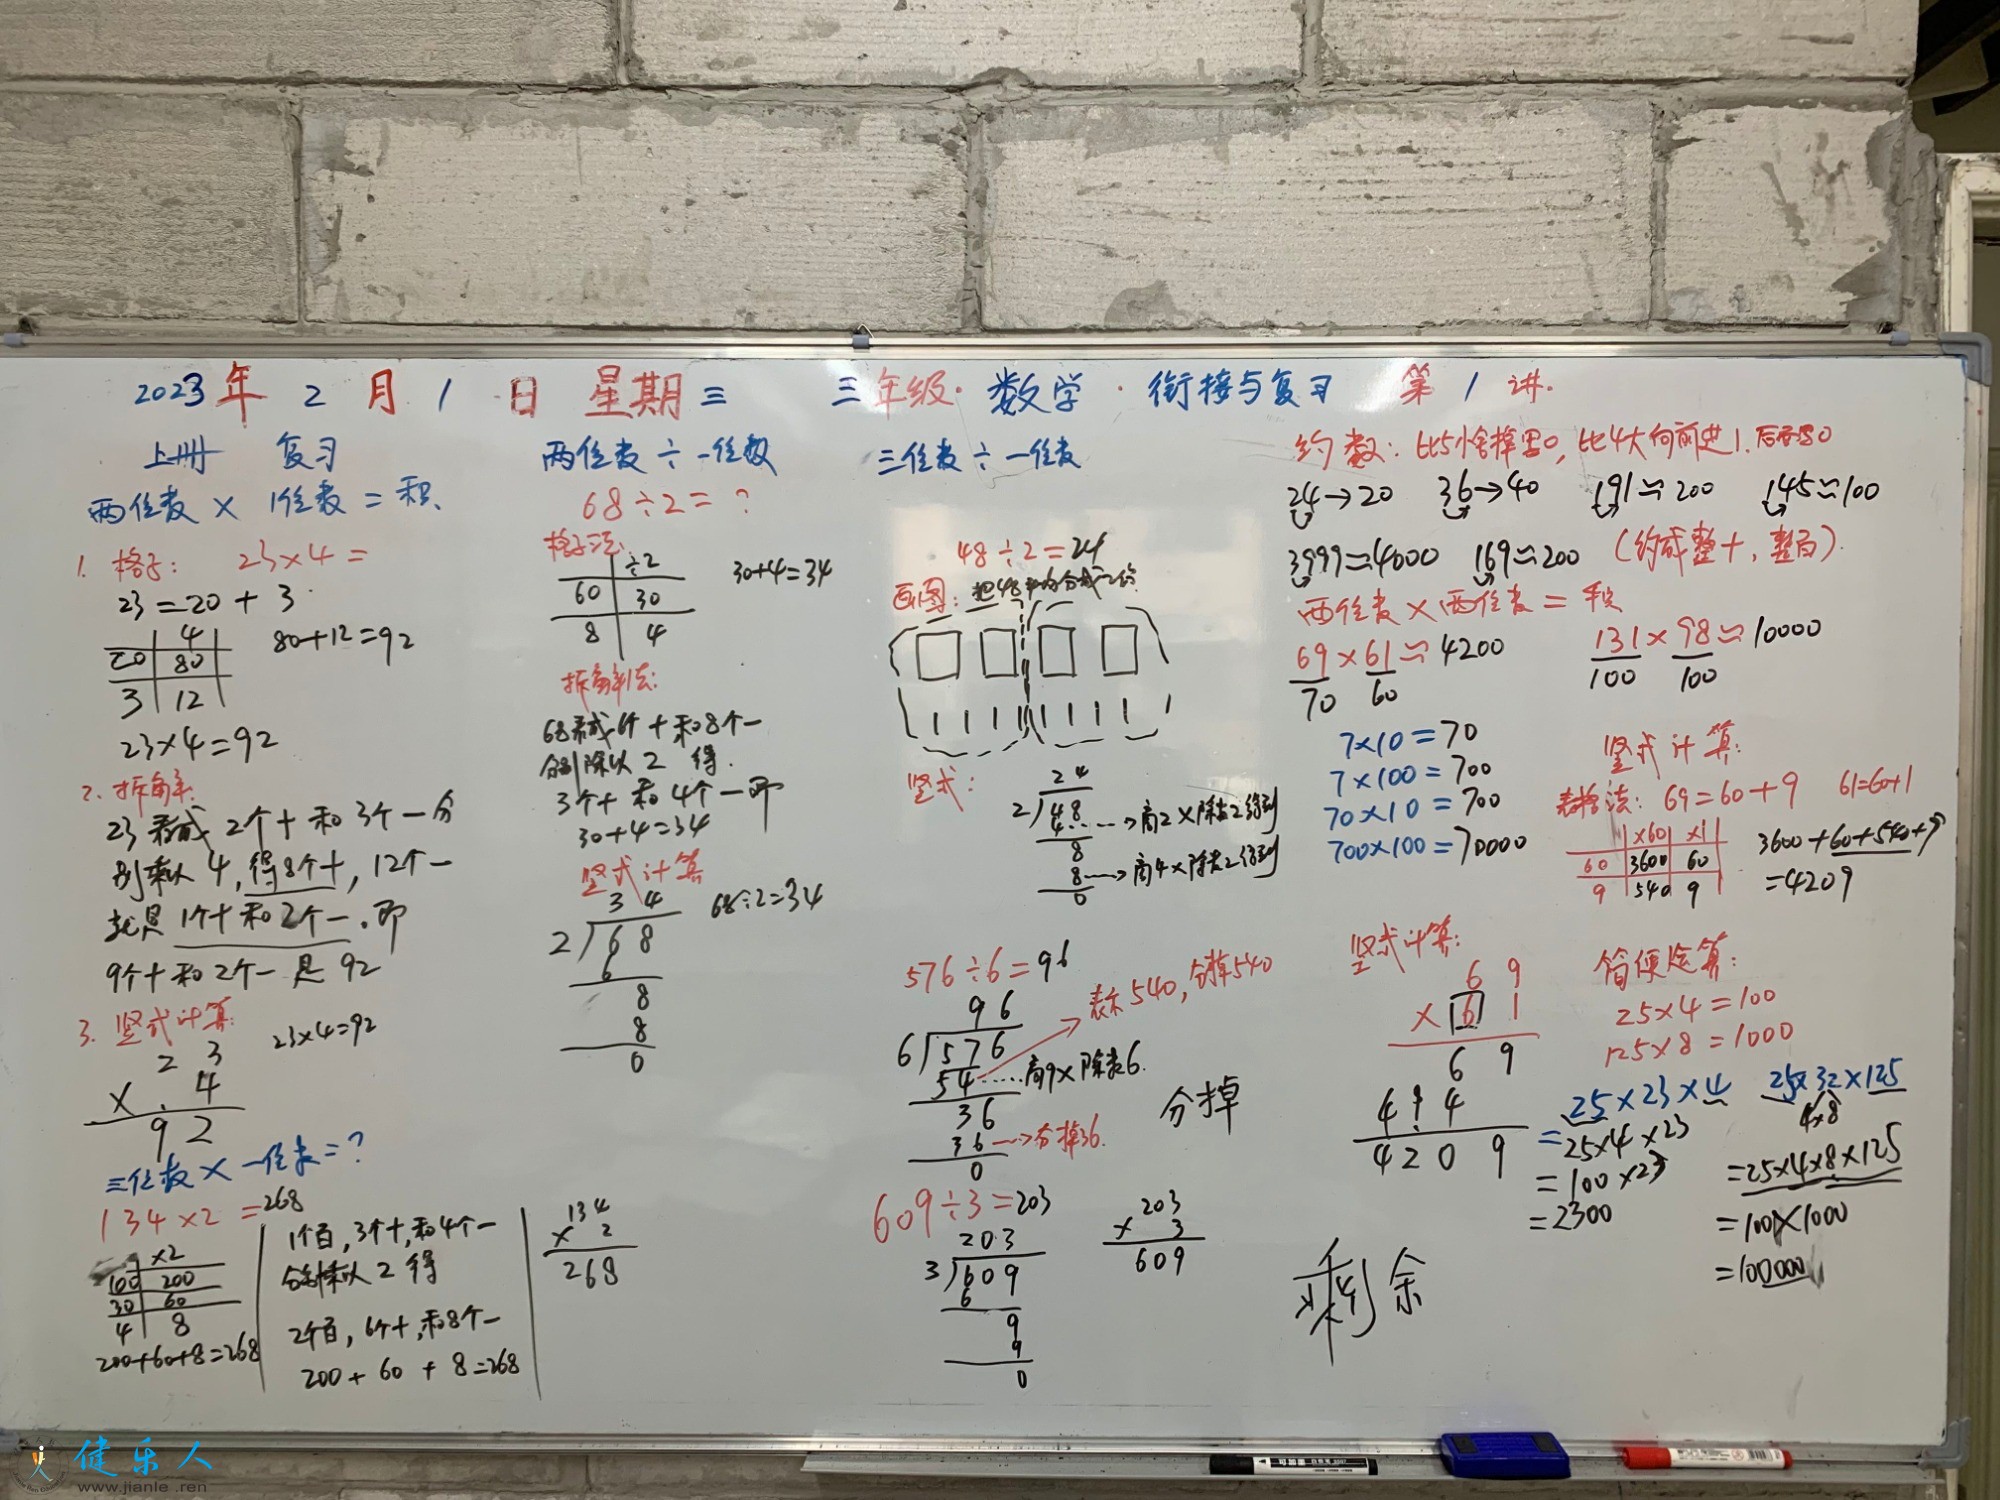 2023年 2 月 1 日 星期三 三年级·数学·衔接与复习 第 1 讲.
上册 复习
两位数 × 1位数 = 积
1. 格子: 23×4=
23=20+3
4
20 80
3 12
80+12=92
23×4=92
2. 拆解:
23看成 2个十和3个一分
别乘以 4, 得8个十, 12个一
就是 1个十和2个一. 即
9个十和2个一是 92
3. 竖式计算:
23×4=92
2 3
× 4
9 2
三位数×一位数=?
134×2=268
×2
100 200
30 60
4 8
200+60+8=268
1个百, 3个十, 和4个一
分别乘以 2 得
2个百, 6个十, 和8个一
200 + 60 + 8=268
134
× 2
268
两位数÷一位数
68÷2=?
格子法:
÷2
60 30
8 4
30+4=34
拆解法:
68看成6个十和8个一
分别除以 2 得.
3个十 和 4个一即
30+4=34
竖式计算
3 4
2 6 8
6
8
8
0
68÷2=34
三位数÷一位数
48÷2=24
画图: 把48平均分成二份
竖式:
24
2 48
4 → 商2×除数2得到
8
8 → 商4×除数2得到
0
576÷6=96
96
6 576
54 ······ 商9×除数6.
表示540, 分掉540
36
36 → 分掉36.
0
分掉
609÷3=203
203
3 609
6
9
9
0
203
× 3
609
约数: 比5小舍掉写0, 比4大向前进1. 后面写0
24→20 36→40 191≈200 145≈100
3999≈4000 169≈200 (约成整十, 整百)
两位数×两位数=积
69×61≈4200
70 60
131×98≈10000
100 100
7×10=70
7×100=700
70×10=700
700×100=70000
竖式计算:
表格法: 69=60+9 61=60+1
×60 ×1
60 3600 60
9 540 9
3600+60+540+9
=4209
竖式计算:
6 9
× 6 1
6 9
4 1 4
4 2 0 9
简便运算:
25×4=100
125×8=1000
25×23×4
=25×4×23
=100×23
=2300
25×32×125
4×8
=25×4×8×125
=100×1000
=100000
剩余
健乐人
www.jianle.ren